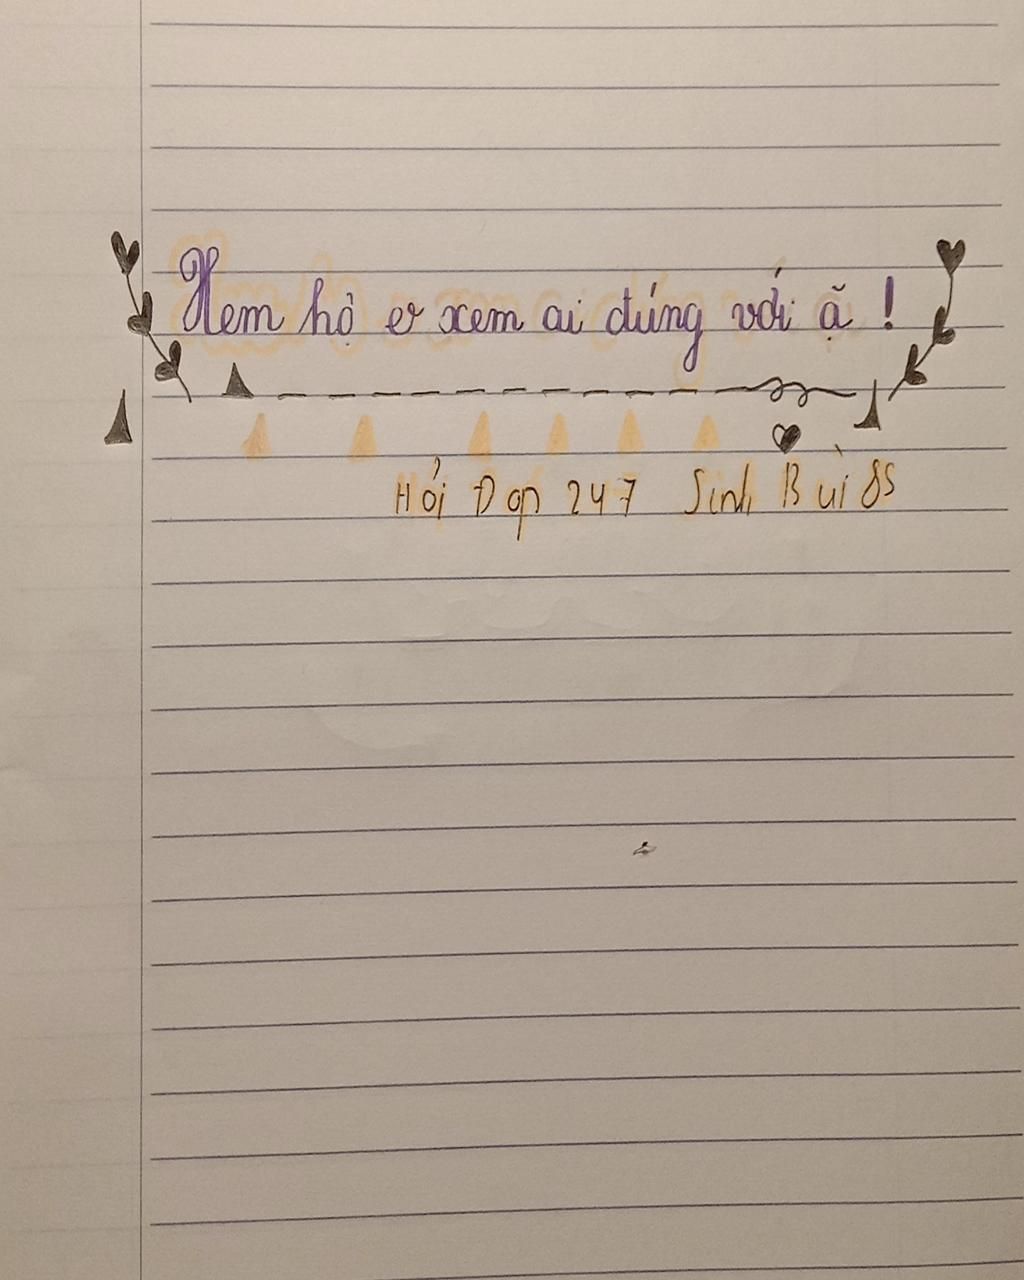 Xem hộ e xem ai đúng với ạ !
Hỏi Đap 247 Sinh Bùi 8S